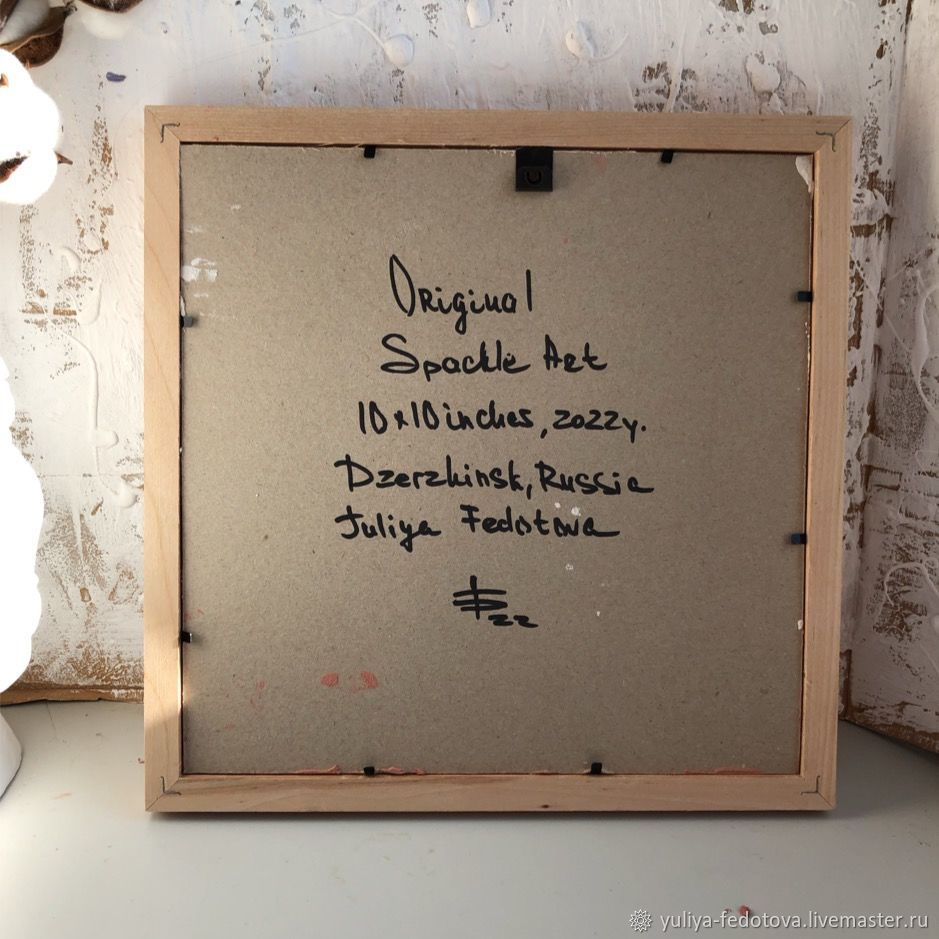 Original
Spackle Art
10x10inches, 2022y.
Dzerzhinsk, Russia
Juliya Fedotova
22
yuliya-fedotova.livemaster.ru